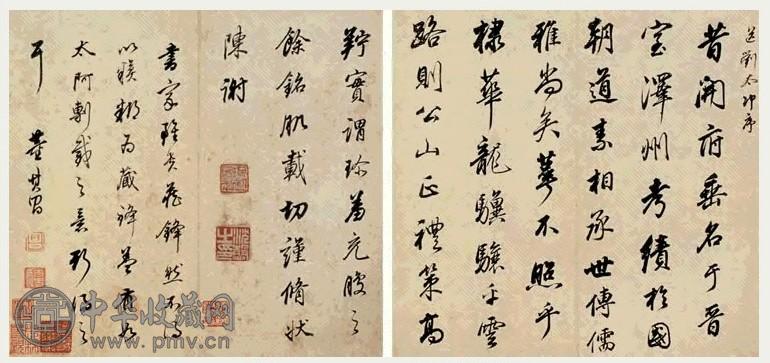 送劉太冲序
昔開府垂名于晉
室澤州考績於國
朝道素相承世傳儒
雅尚矣萼不照乎
棣華龍驥驤乎雲
路則公山正禮策高
羜實謂珍羞充腹之
餘銘肌載切謹脩狀
陳謝
書家雖貴藏鋒然不得
以模糊為藏鋒 如
太阿剸截之意 得之
耳 董其昌
中华收藏网
www.pmv.cn